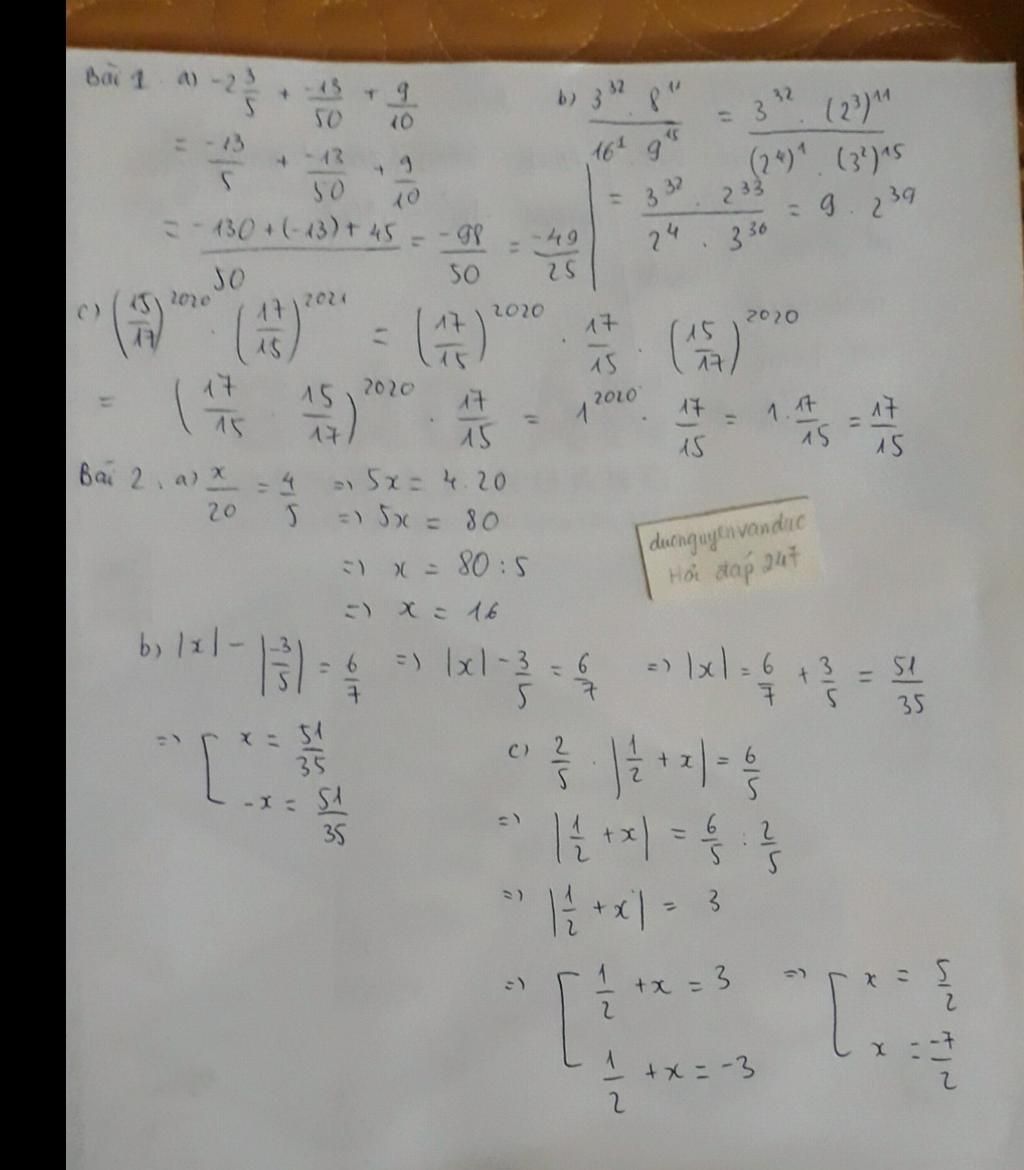 Bài 1. a) -2 3/5 + -13/50 + 9/10
= -13/5 + -13/50 + 9/10
= -130+(-13)+45/50 = -98/50 = -49/25
b) 3^32 . 8^11 / 16^1 . 9^15 = 3^32 . (2^3)^11 / (2^4)^1 . (3^2)^15
= 3^32 . 2^33 / 2^4 . 3^30 = 9 . 2^39
c) (15/17)^2020 . (17/15)^2021 = (17/15)^2020 . 17/15 . (15/17)^2020
= (17/15 . 15/17)^2020 . 17/15 = 1^2020 . 17/15 = 1. 17/15 = 17/15
Bài 2. a) x/20 = 4/5 => 5x = 4.20
=> 5x = 80
=> x = 80 : 5
=> x = 16
ducnguyenvanduc
Hỏi đáp 247
b) |x| - |-3/5| = 6/7 => |x| - 3/5 = 6/7 => |x| = 6/7 + 3/5 = 51/35
=> [ x = 51/35
-x = 51/35
c) 2/5 . |1/2 + x| = 6/5
=> |1/2 + x| = 6/5 : 2/5
=> |1/2 + x| = 3
=> [ 1/2 + x = 3 => [ x = 5/2
1/2 + x = -3 x = -7/2